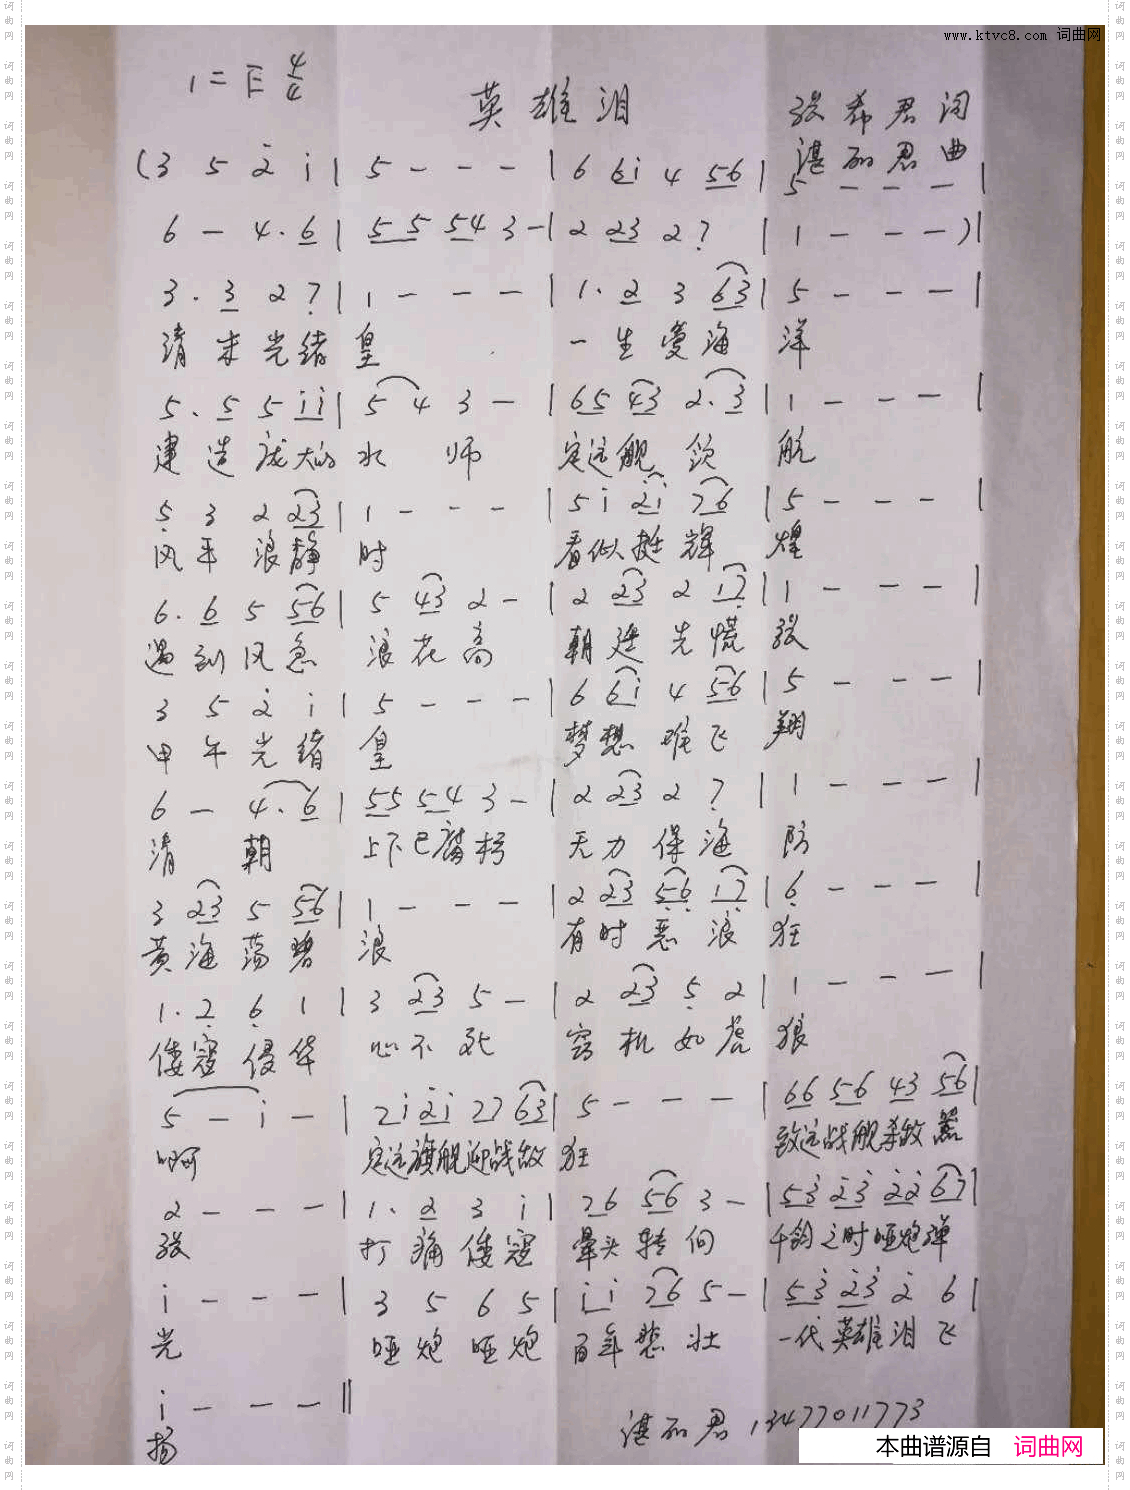 www.ktvc8.com 词曲网
1=E 4/4
英雄泪
张希君词
湛丽君曲
(3 5 2̇ i | 5 - - - | 6 6i 4 56 | 5 - - - |
6 - 4. 6 | 55 54 3 - | 2 23 2 7 | 1 - - - )|
3. 3 2 7 | 1 - - - | 1. 2 3 63 | 5 - - - |
清末光绪皇 一生爱海洋
5. 5 5 ii | 5 4 3 - | 65 43 2. 3 | 1 - - - |
建造庞大的水师 定远舰领航
5 3 2 23 | 1 - - - | 5 i 2̇i 76 | 5 - - - |
风平浪静时 看似挺辉煌
6. 6 5 56 | 5 43 2 - | 2 23 2 17 | 1 - - - |
遇到风急浪花高 朝廷先慌张
3 5 2̇ i | 5 - - - | 6 6i 4 56 | 5 - - - |
甲午光绪皇 梦想难飞翔
6 - 4. 6 | 55 54 3 - | 2 23 2 7 | 1 - - - |
清朝上下已腐朽 无力保海防
3 23 5 56 | 1 - - - | 2 23 56 17 | 6 - - - |
黄海荡碧浪 有时恶浪狂
1. 2 6 1 | 3 23 5 - | 2 23 5 2 | 1 - - - |
倭寇侵华心不死 窃机如虎狼
5 - i - | 2i 2̇i 27 63 | 5 - - - | 66 56 43 56 |
啊 定远旗舰迎战敌狂 致远战舰杀敌嚣
2 - - - | 1. 2 3 i | 76 56 3 - | 53̇ 2̇3̇ 2̇2̇ 67 |
张 打痛倭寇晕头转向 千钧之时哑炮弹
i - - - | 3 5 6 5 | ii 76 5 - | 53̇ 2̇3̇ 2̇ 6 |
光 哑炮哑炮百年悲壮 一代英雄泪飞
i - - - ‖
扬
湛丽君 13477011773
本曲谱源自 词曲网